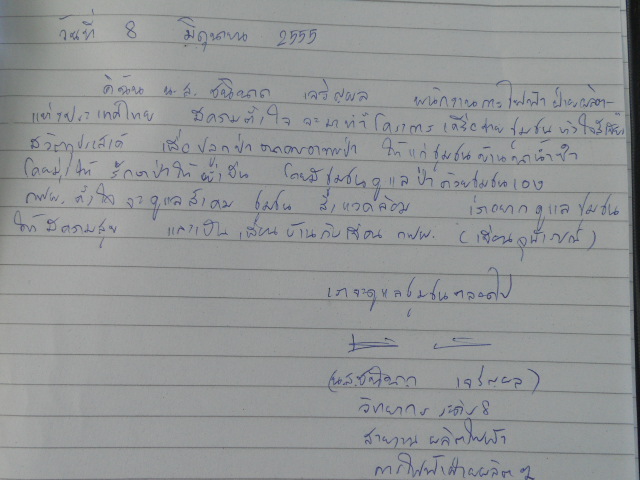 วันที่ 8 มิถุนายน 2555
ดิฉัน น.ส. ชนินาถ เจริญผล พนักงานการไฟฟ้าฝ่ายผลิต-
แห่งประเทศไทย มีความตั้งใจ จะมาทำโครงการ เครือข่ายชุมชน หัวใจสีเขียว
มีวัตถุประสงค์ เพื่อปลูกป่า ให้แก่ชุมชนบ้าน
ให้ รักษาป่าให้ยั่งยืน โดยมีชุมชนดูแลป่าด้วยชุมชนเอง
กฟผ. ตั้งใจจะดูแลสังคม ชุมชน สิ่งแวดล้อม เราอยากดูแลชุมชน
ให้มีความสุข และเป็นเพื่อนบ้านกับเขื่อน กฟผ. (เขื่อนจุฬาภรณ์)
เราจะดูแลชุมชนตลอดไป
(น.ส.ชนินาถ เจริญผล)
วิทยากร ระดับ 8
สายงานผลิตไฟฟ้า
การไฟฟ้าฝ่ายผลิตฯ